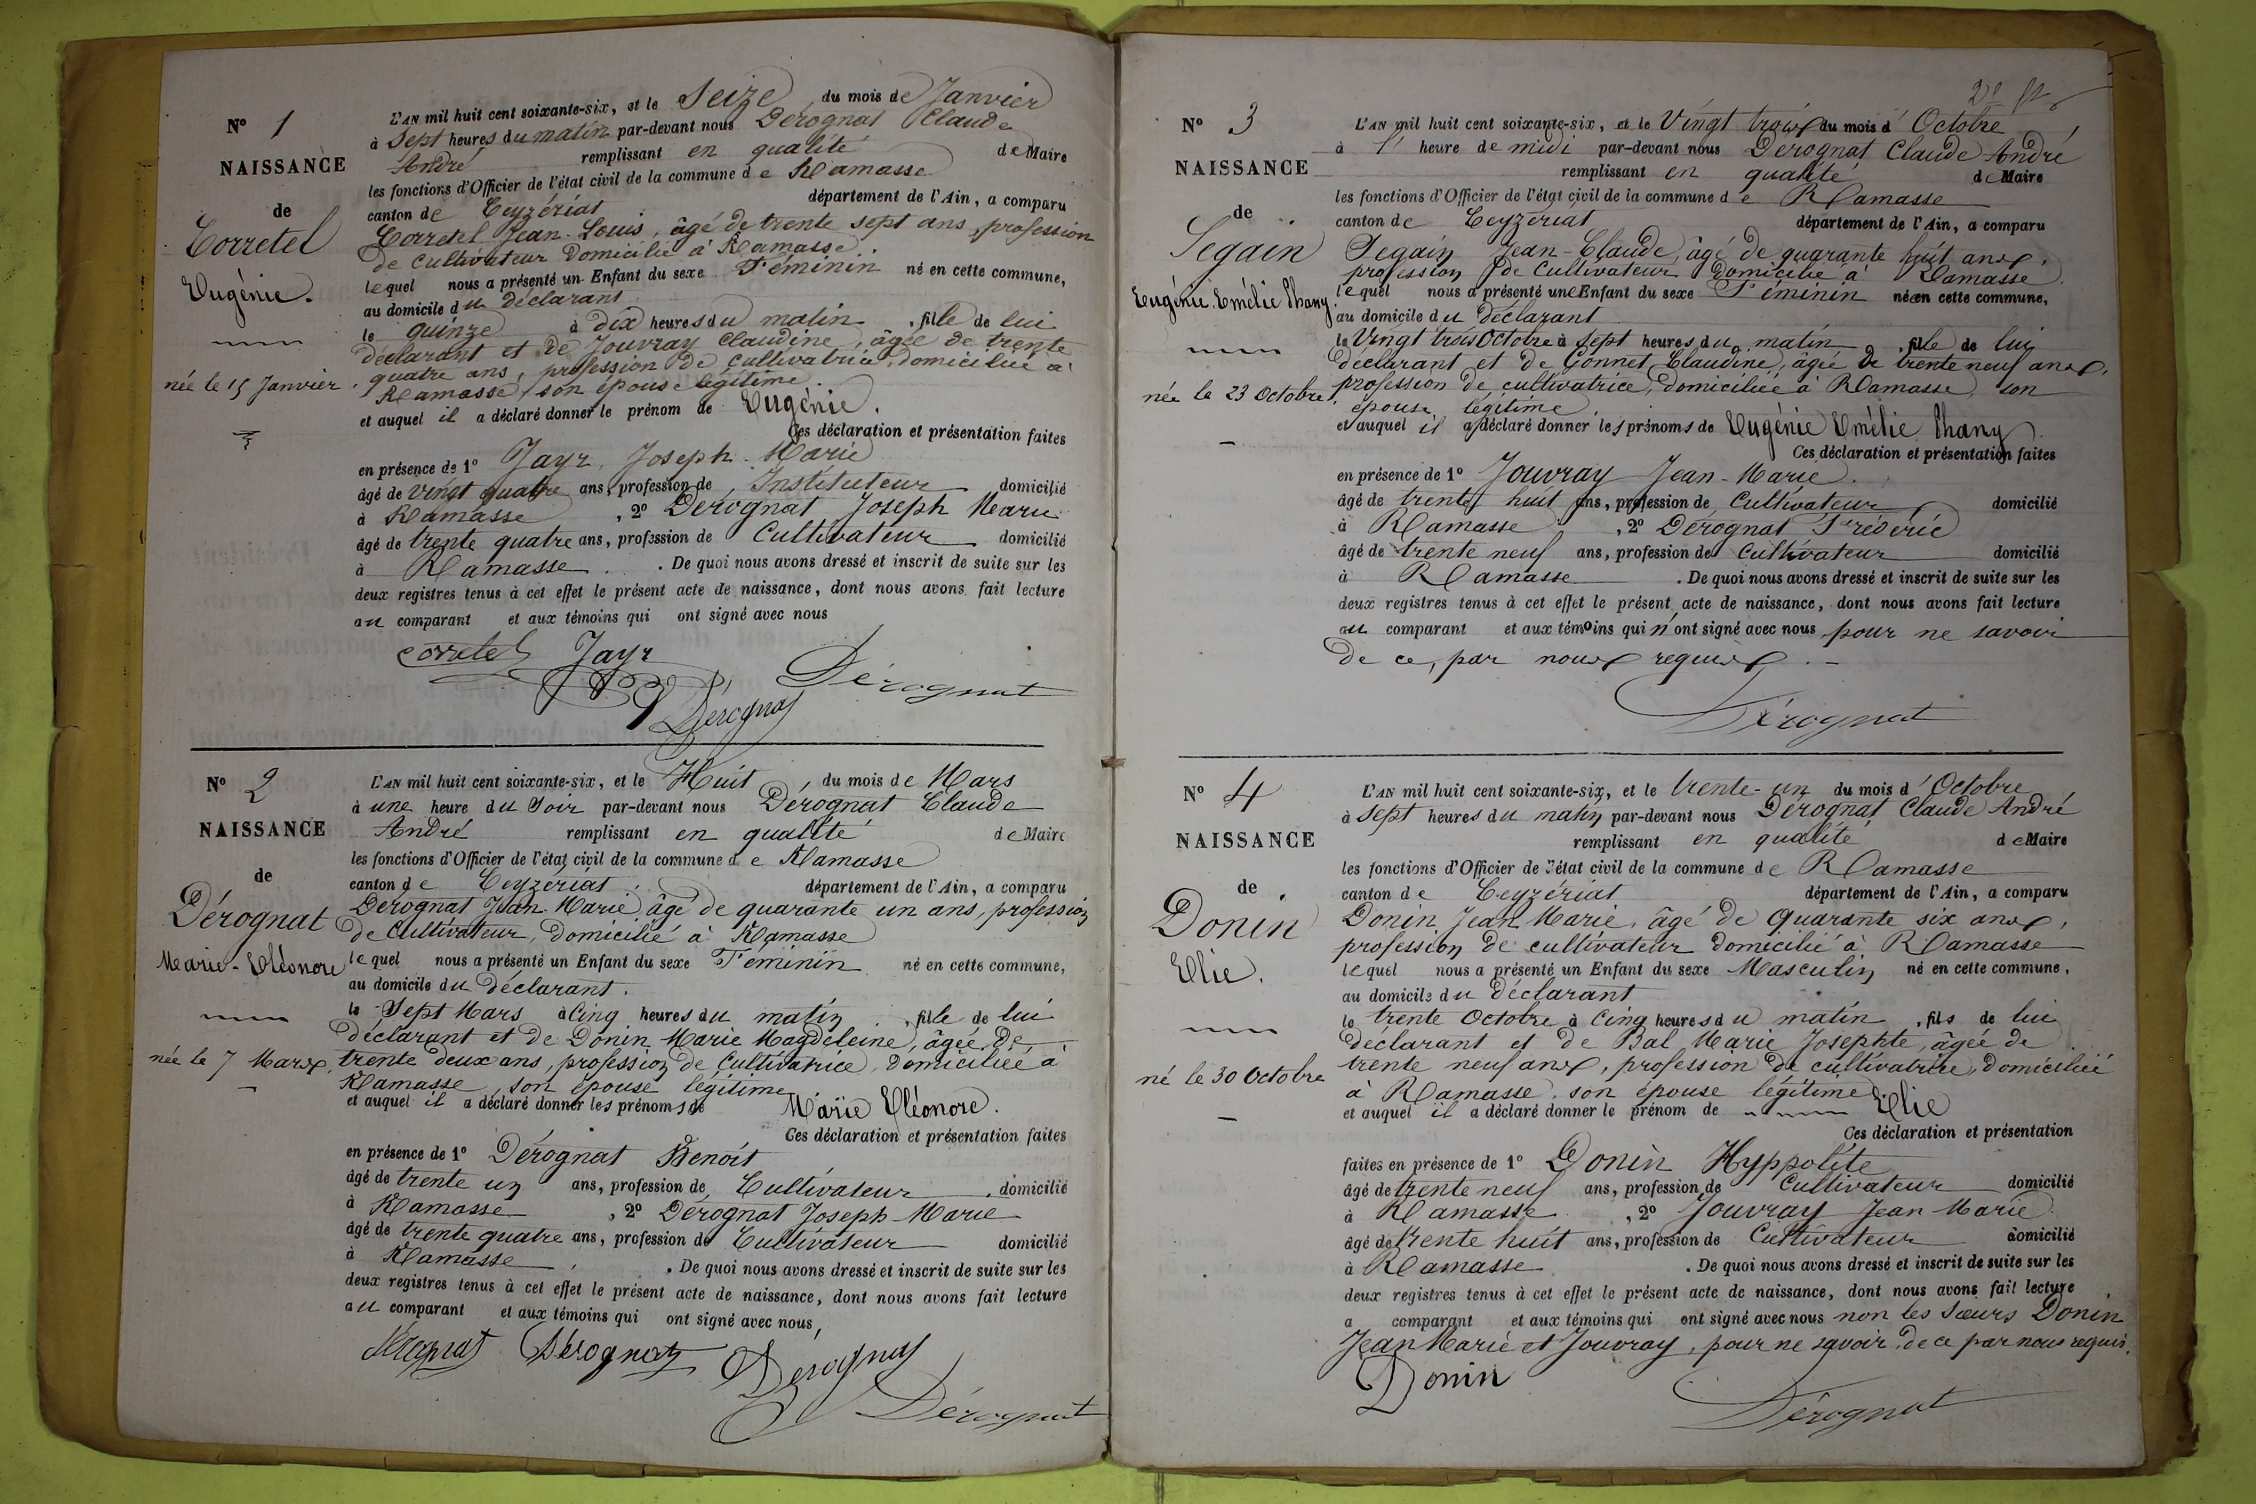 N° 1
NAISSANCE
de
Corretel
Eugénie.
née le 15 Janvier
L'AN mil huit cent soixante-six, et le Seize du mois de Janvier
à Sept heures du matin par-devant nous Dérognat Claude
André remplissant en qualité de Maire
les fonctions d'Officier de l'état civil de la commune de Ramasse
canton de Ceyzériat département de l'Ain, a comparu
Corretel Jean-Louis, âgé de trente sept ans, profession
de Cultivateur Domicilié à Ramasse.
lequel nous a présenté un Enfant du sexe Féminin né en cette commune,
au domicile du déclarant
le quinze à dix heures du matin, fille de lui
déclarant et de Jouvray Claudine, âgée de trente
quatre ans, profession de cultivatrice, domiciliée à
Ramasse, son épouse légitime.
et auquel il a déclaré donner le prénom de Eugénie.
Ces déclaration et présentation faites
en présence de 1° Jayr, Joseph-Marie
âgé de vingt quatre ans, profession de Instituteur domicilié
à Ramasse, 2° Dérognat Joseph Marie
âgé de trente quatre ans, profession de Cultivateur domicilié
à Ramasse. De quoi nous avons dressé et inscrit de suite sur les
deux registres tenus à cet effet le présent acte de naissance, dont nous avons fait lecture
au comparant et aux témoins qui ont signé avec nous
Jayr
Dérognat
Dérognat
N° 2
NAISSANCE
de
Dérognat
Marie-Eléonore
née le 7 Mars
L'AN mil huit cent soixante-six, et le Huit, du mois de Mars
à une heure du Soir par-devant nous Dérognat Claude
André remplissant en qualité de Maire
les fonctions d'Officier de l'état civil de la commune de Ramasse
canton de Ceyzériat département de l'Ain, a comparu
Dérognat Jean-Marie âgé de quarante un ans, profession
de Cultivateur, Domicilié à Ramasse
lequel nous a présenté un Enfant du sexe Féminin né en cette commune,
au domicile du déclarant.
le Sept Mars à Cinq heures du matin, fille de lui
déclarant et de Donin Marie Magdeleine, âgée de
trente deux ans, profession de Cultivatrice, Domiciliée à
Ramasse, son épouse légitime
et auquel il a déclaré donner les prénoms de Marie Eléonore.
Ces déclaration et présentation faites
en présence de 1° Dérognat Benoît
âgé de trente un ans, profession de Cultivateur, domicilié
à Ramasse, 2° Dérognat Joseph-Marie
âgé de trente quatre ans, profession de Cultivateur domicilié
à Ramasse. De quoi nous avons dressé et inscrit de suite sur les
deux registres tenus à cet effet le présent acte de naissance, dont nous avons fait lecture
au comparant et aux témoins qui ont signé avec nous,
Dérognat Dérognat Dérognat
Dérognat
N° 3
NAISSANCE
de
Segain
Eugénie Emélie Phany.
née le 23 Octobre
L'AN mil huit cent soixante-six, et le Vingt trois du mois d'Octobre,
à 1 heure de midi par-devant nous Dérognat Claude André
remplissant en qualité de Maire
les fonctions d'Officier de l'état civil de la commune de Ramasse
canton de Ceyzériat département de l'Ain, a comparu
Segain Jean-Claude, âgé de quarante huit ans,
profession de Cultivateur Domicilié à Ramasse.
lequel nous a présenté une Enfant du sexe Féminin née en cette commune,
au domicile du déclarant
le Vingt trois Octobre à Sept heures du matin, fille de lui
déclarant et de Gonnet Claudine, âgée de trente neuf ans,
profession de cultivatrice, domiciliée à Ramasse, son
épouse légitime
et auquel il a déclaré donner les prénoms de Eugénie Emélie Phany.
Ces déclaration et présentation faites
en présence de 1° Jouvray Jean-Marie
âgé de trente huit ans, profession de Cultivateur domicilié
à Ramasse, 2° Dérognat Fréderic
âgé de trente neuf ans, profession de Cultivateur domicilié
à Ramasse. De quoi nous avons dressé et inscrit de suite sur les
deux registres tenus à cet effet le présent acte de naissance, dont nous avons fait lecture
au comparant et aux témoins qui n'ont signé avec nous pour ne savoir
de ce, par nous requis.
Dérognat
N° 4
NAISSANCE
de
Donin
Elie.
né le 30 Octobre
L'AN mil huit cent soixante-six, et le trente-un du mois d'Octobre
à Sept heures du matin par-devant nous Dérognat Claude André
remplissant en qualité de Maire
les fonctions d'Officier de l'état civil de la commune de Ramasse
canton de Ceyzériat département de l'Ain, a comparu
Donin Jean Marie, âgé de Quarante six ans,
profession de cultivateur Domicilié à Ramasse
lequel nous a présenté un Enfant du sexe Masculin né en cette commune,
au domicile du déclarant
le trente Octobre à Cinq heures du matin, fils de lui
déclarant et de Bal Marie Josephte, âgée de
trente neuf ans, profession de cultivatrice, Domiciliée
à Ramasse, son épouse légitime.
et auquel il a déclaré donner le prénom de Elie
Ces déclaration et présentation
faites en présence de 1° Donin Hyppolite
âgé de trente neuf ans, profession de Cultivateur domicilié
à Ramasse, 2° Jouvray Jean Marie
âgé de trente huit ans, profession de Cultivateur domicilié
à Ramasse. De quoi nous avons dressé et inscrit de suite sur les
deux registres tenus à cet effet le présent acte de naissance, dont nous avons fait lecture
a comparant et aux témoins qui ont signé avec nous non les Sœurs Donin
Jean Marie et Jouvray, pour ne savoir de ce par nous requis.
Donin
Dérognat